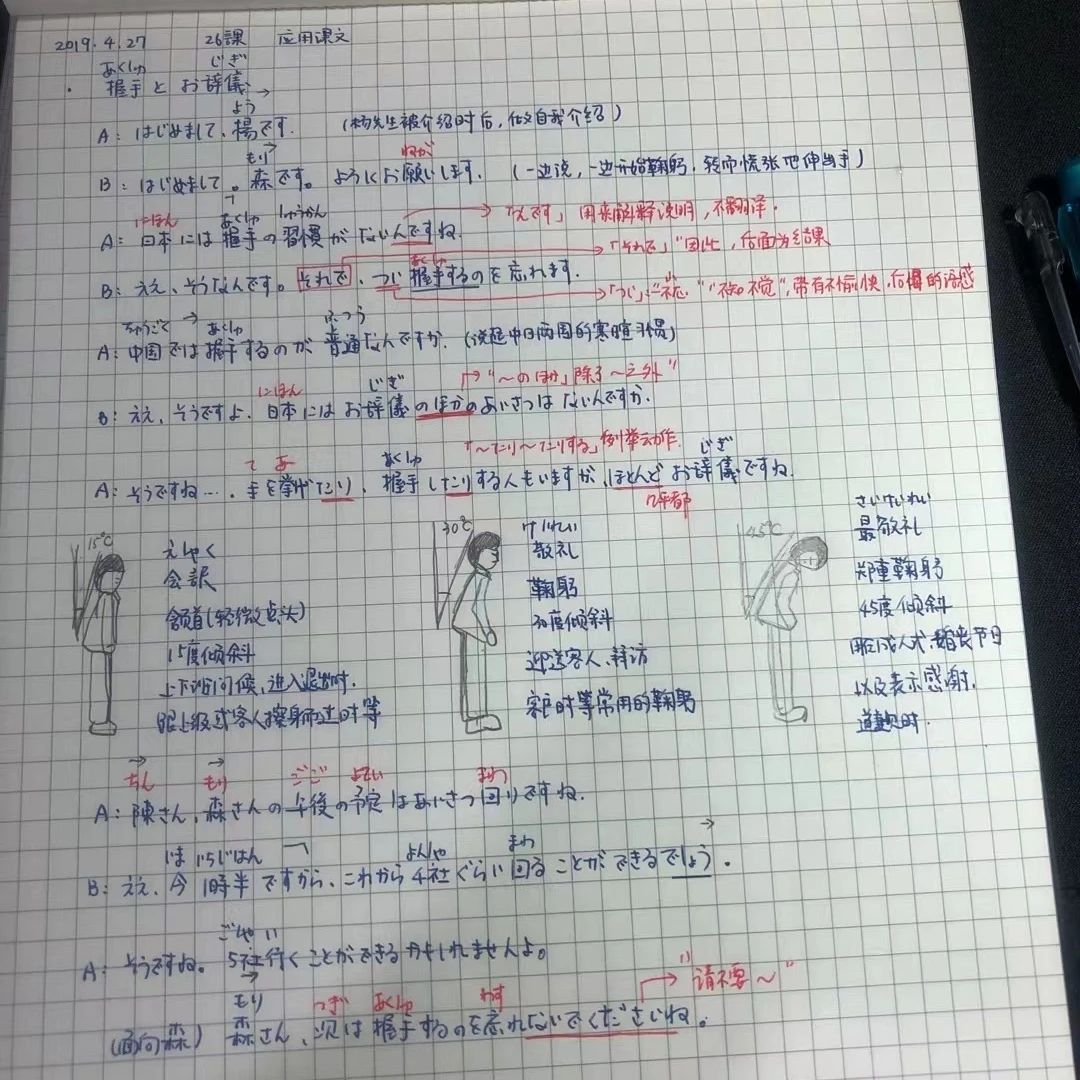 2019.4.27 26課 应用课文
あくしゅ じぎ
握手とお辞儀
よう
A: はじめまして、楊です. (杨先生被介绍时后,做自我介绍)
もり ねが
B: はじめまして。森です。ようしくお願いします. (一边说,一边开始鞠躬,转而慌张地伸出手)
にほん あくしゅ しゅうかん 「んです」用来解释说明,不翻译.
A: 日本には握手の習慣がないんですね.
「それで」"因此,后面为结果
あくしゅ
B: ええ、そうなんです。それで、つい握手するのを忘れます.
「つい」:"无意" "不知不觉",带有不愉快,后悔的语感
ちゅうごく あくしゅ ふつう
A: 中国では握手するのが普通なんですか. (说起中日两国的寒暄习惯)
にほん じぎ "~のほか」除了~之外"
B: ええ、そうですよ、日本にはお辞儀のほかのあいさつはないんですか.
「~たり~たりする」例举动作.
て あ あくしゅ じぎ
A: そうですね…. 手を挙げたり、握手したりする人もいますが、ほとんどお辞儀ですね.
几乎都
15℃
えしゃく
会釈
颔首(轻微点头)
15度倾斜
上下班问候,进入退出时.
跟上级或客人擦身而过时等
30℃
けいれい
敬礼
鞠躬
30度倾斜
迎送客人、拜访
客户时等常用的鞠躬
45℃
さいけいれい
最敬礼
郑重鞠躬
45度倾斜
用后成人式、婚丧节日
以及表示感谢.
道歉时.
ちん もり ごご よてい まわ
A: 陳さん、森さんの午後の予定はあいさつ回りですね.
いま いちじはん よんしゃ まわ
B: ええ、今1時半ですから、これから4社ぐらい回ることができるでしょう.
ごしゃ い
A: そうですね。5社行くことができるかもしれませんよ。
"请不要~"
もり つぎ あくしゅ わす
(面向森) 森さん、次は握手するのを忘れないでくださいね。